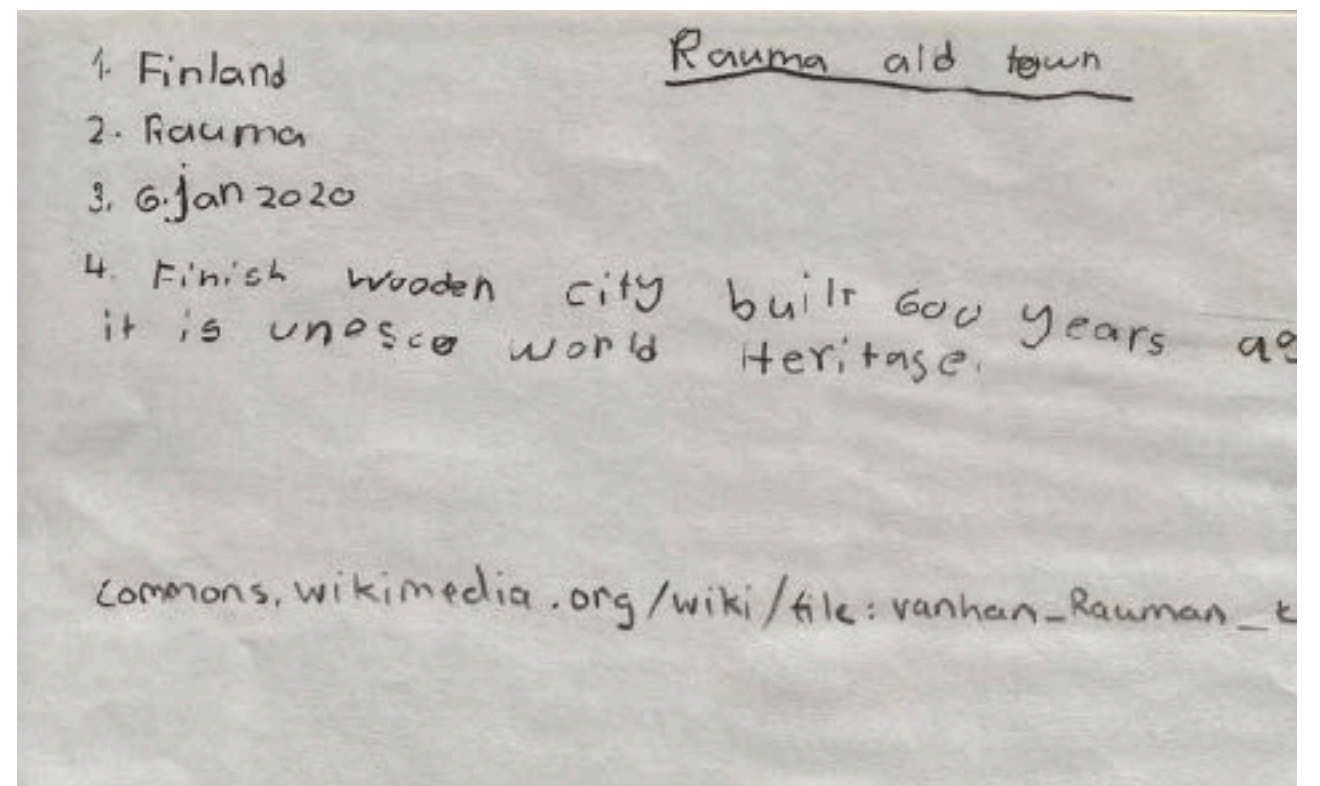 Rauma ald town
1. Finland
2. Rauma
3. 6.jan 2020
4. Finish wooden city built 600 years ag
it is unesco world Heritage.
commons.wikimedia.org/wiki/file:vanhan_Rauman_t